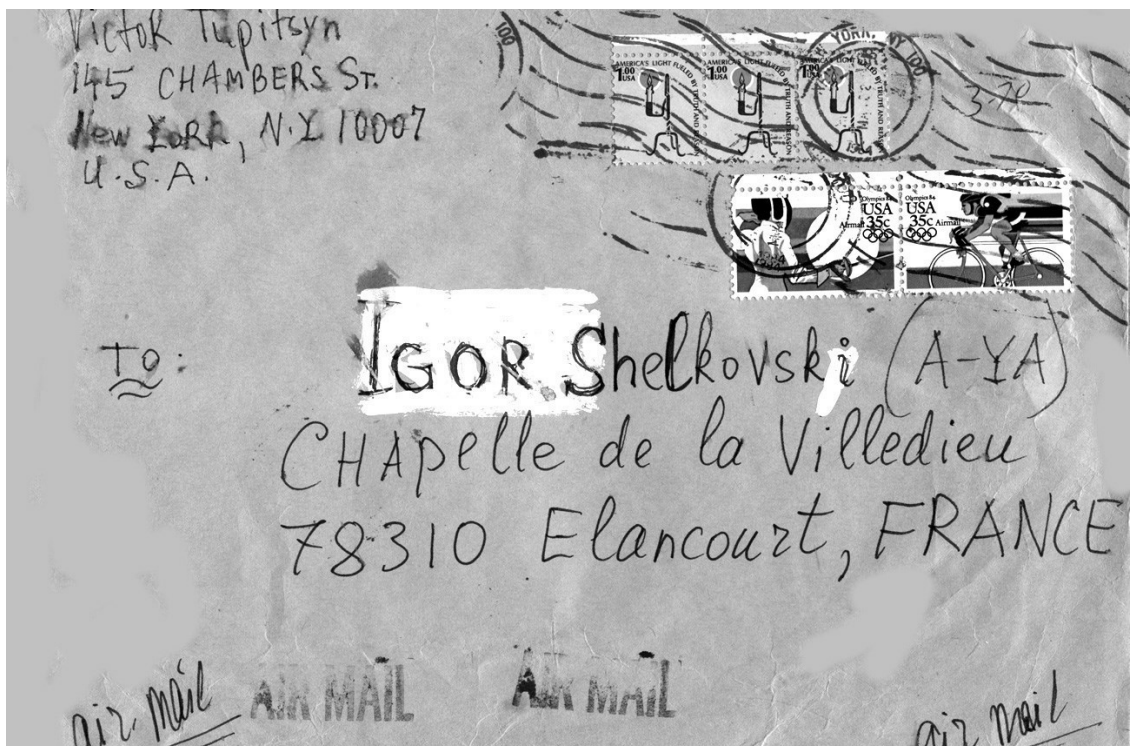 Victor Tupitsyn
145 CHAMBERS ST.
New York, N.Y 10007
U.S.A.
100
YORK, NY
100
AMERICA'S LIGHT FUELED BY TRUTH AND REASON
1.00
USA
AMERICA'S LIGHT FUELED BY TRUTH AND REASON
1.00
USA
AMERICA'S LIGHT FUELED BY TRUTH AND REASON
1.00
USA
3-70
Olympics 84
USA
35c
Airmail
Olympics 84
USA
35c
Airmail
TO:
IGOR Shelkovski (A-YA)
CHApelle de la Villedieu
78310 Elancourt, FRANCE
air mail
AIR MAIL
AIR MAIL
air mail